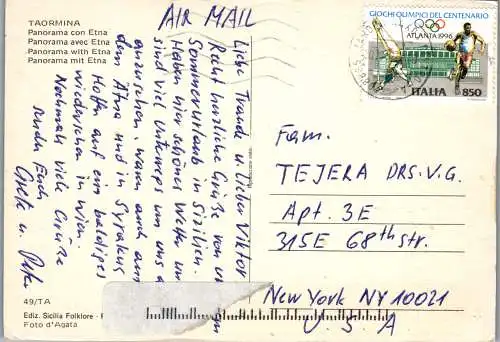 TAORMINA
Panorama con Etna
Panorama avec Etna
Panorama with Etna
Panorama mit Etna
AIR MAIL
Liebe Traudl u. lieber Viktor
Recht herzliche Grüße von
Sommerurlaub in Sizilien.
Haben hier schönes Wetter und
sind viel unterwegs um uns
anzuschauen, waren auch am
dem Ätna und in Syrakus
Hoffen auf ein baldiges
wiedersehen in Wien.
Nochmals viele Grüße
senden Euch
Grete u. Peter
GIOCHI OLIMPICI DEL CENTENARIO
ATLANTA 1996
ITALIA 850
Fam.
TEJERA DRS. V.G.
Apt. 3E
315E 68th str.
New York NY 10021
U.S.A
49/TA
Ediz. Sicilia Folklore
Foto d'Agata